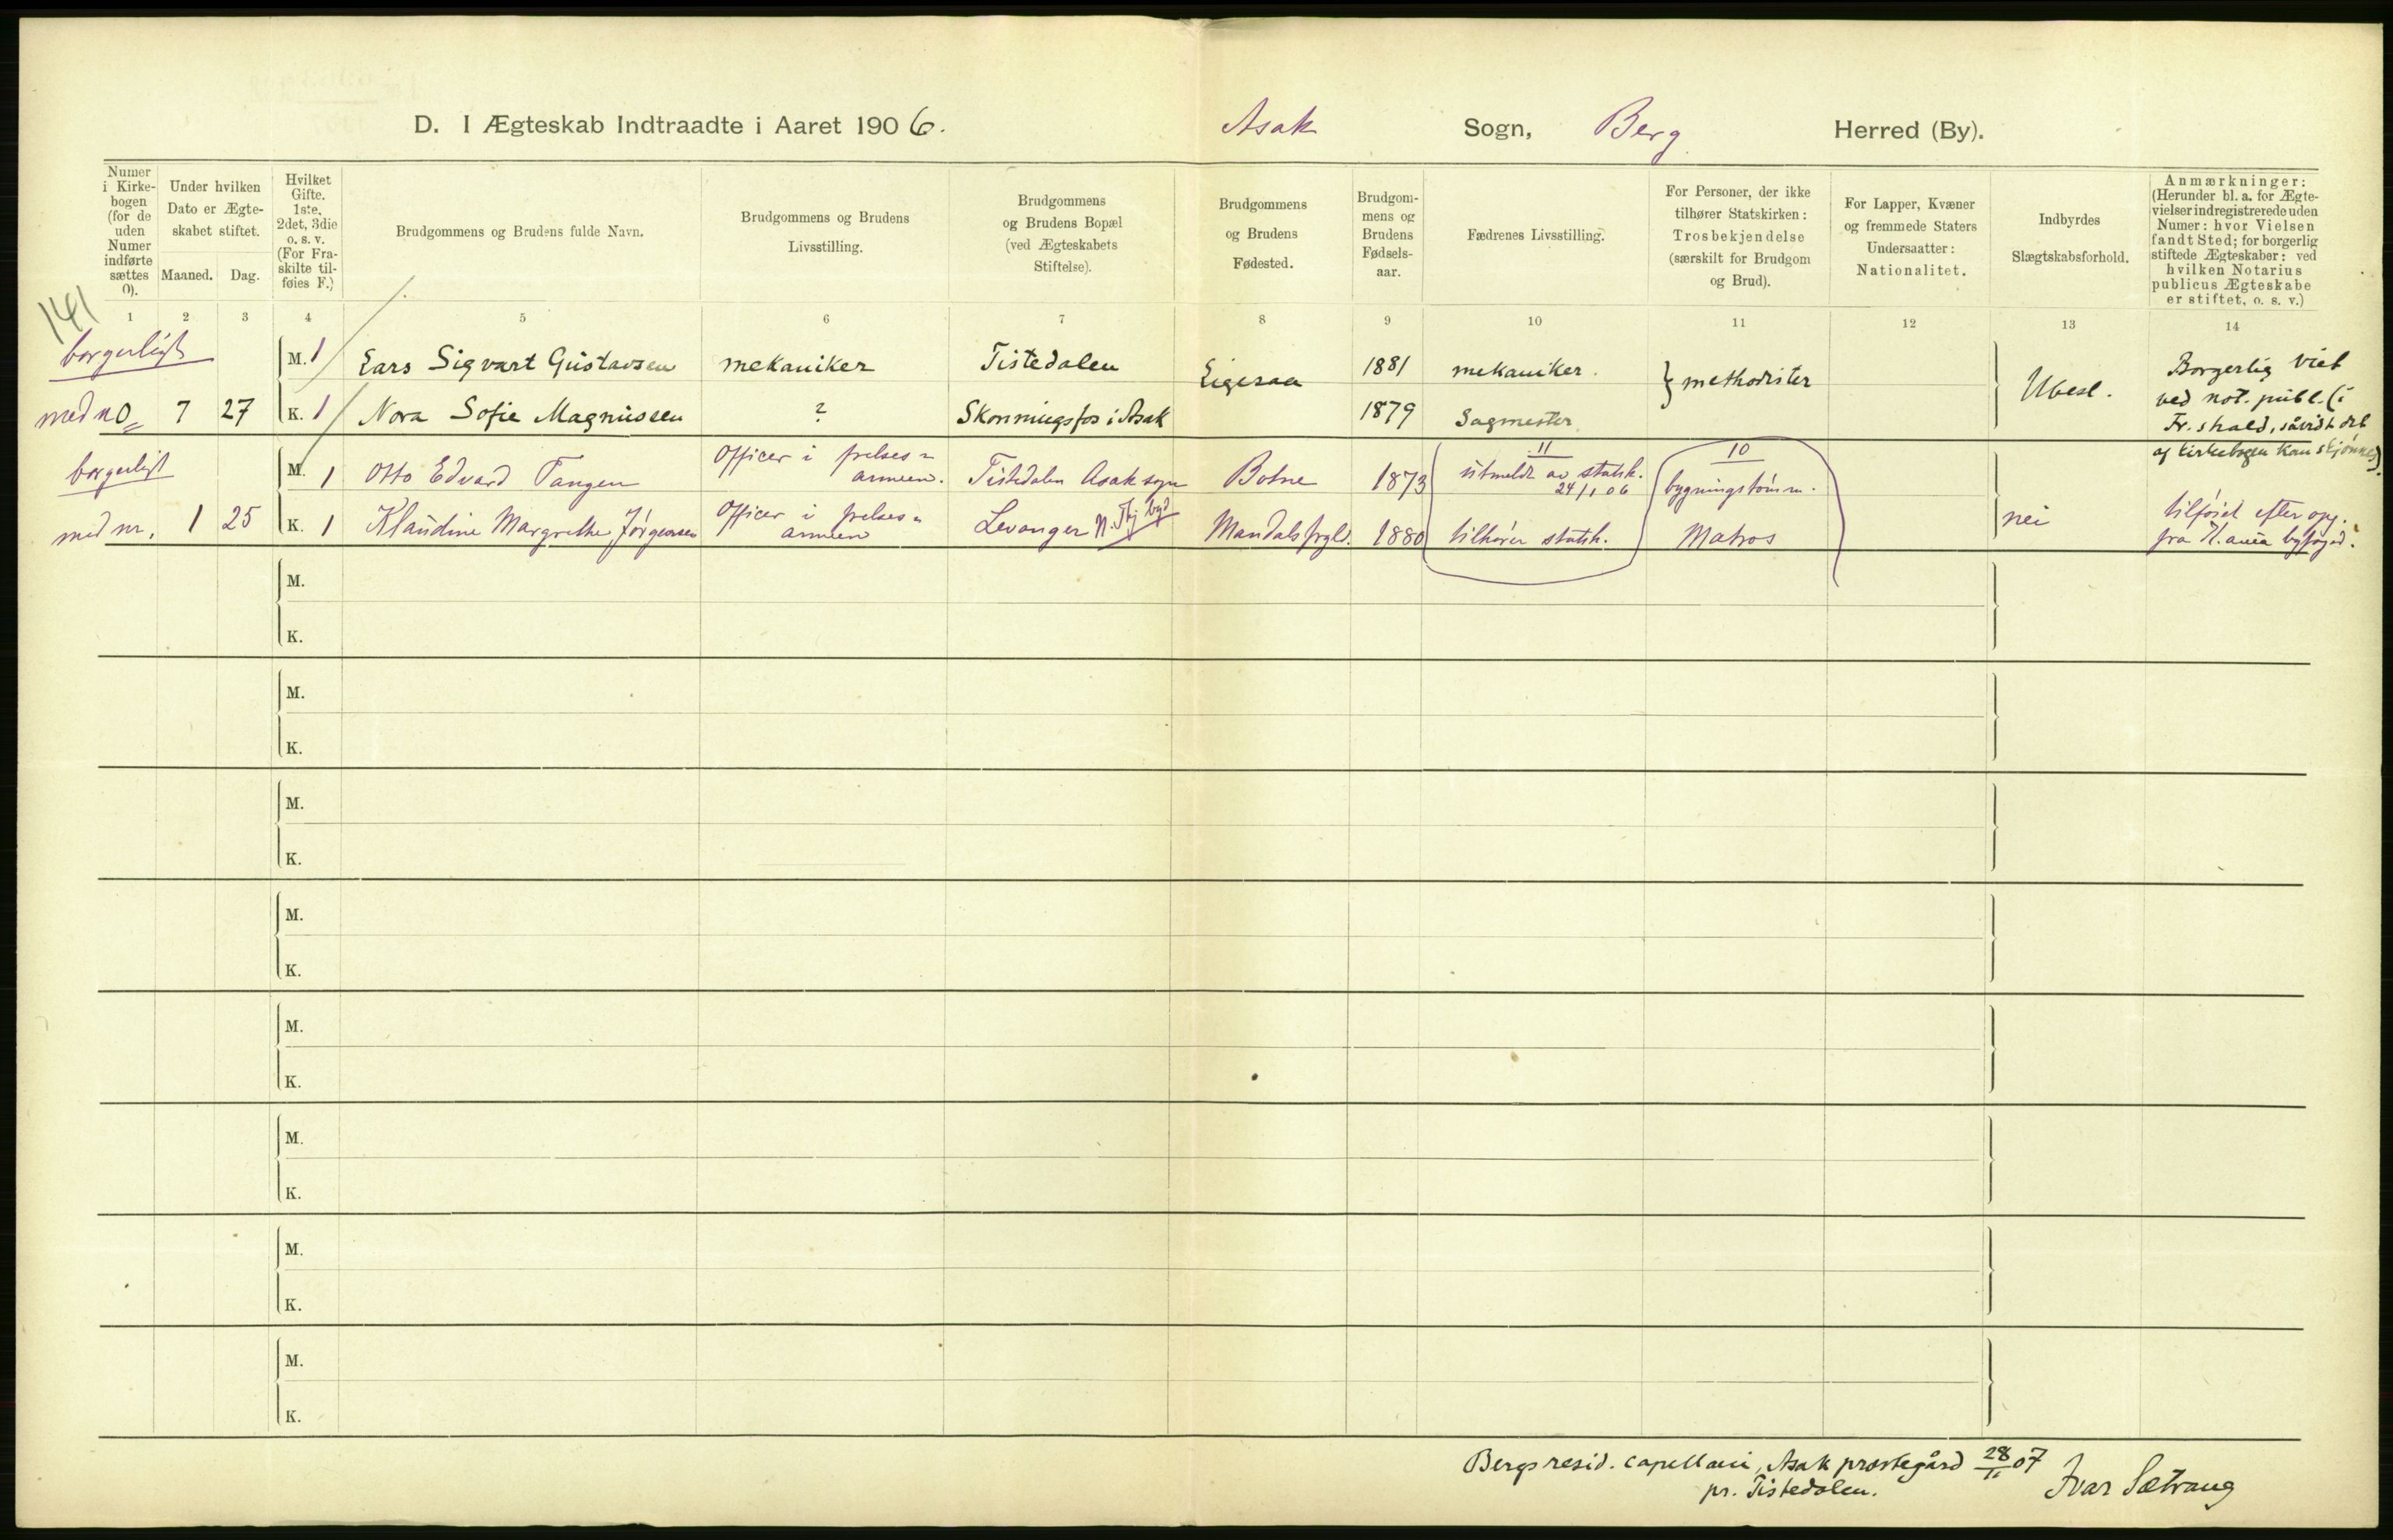 D. I Ægteskab Indtraadte i Aaret 1906. Asak Sogn, Berg Herred (By).
Numer i Kirke-bogen (for de uden Numer indførte sættes 0).
Under hvilken Dato er Ægte-skabet stiftet.
Maaned. Dag.
Hvilket Gifte. 1ste, 2det, 3die o. s. v. (For Fra-skilte til-føies F.)
Brudgommens og Brudens fulde Navn.
Brudgommens og Brudens Livsstilling.
Brudgommens og Brudens Bopæl (ved Ægteskabets Stiftelse).
Brudgommens og Brudens Fødested.
Brudgom-mens og Brudens Fødsels-aar.
Fædrenes Livsstilling.
For Personer, der ikke tilhører Statskirken: Trosbekjendelse (særskilt for Brudgom og Brud).
For Lapper, Kvæner og fremmede Staters Undersaatter: Nationalitet.
Indbyrdes Slægtskabsforhold.
Anmærkninger: (Herunder bl. a. for Ægte-vielser indregistrerede uden Numer: hvor Vielsen fandt Sted; for borgerlig stiftede Ægteskaber: ved hvilken Notarius publicus Ægteskabe er stiftet, o. s. v.)
141
1 2 3 4 5 6 7 8 9 10 11 12 13 14
borgerligt M. 1 Lars Sigvart Gustavsen mekaniker Tistedalen 1881 mekaniker. Borgerlig viet
Eigesaa } methodister Ubesl. ved not. publ. (i
med no 7 27 K. 1 Nora Sofie Magnussen ? Skonningsfos i Asak 1879 Sagmester Fr.shald, såvidt det
af kirkebogen kan skjønnes).
borgerligt M. 1 Otto Edvard Tangen Officer i frelses= armeen. Tistedalen Asak sogn Botne 1873 11 utmeldt av statsk. 24/1 06 10 bygningstømm.
med nr. 1 25 K. 1 Klaudine Margrethe Jørgensen Officer i frelses= armeen Levanger N. Thj. byd Mandals prgld. 1880 tilhører statsk. Matros nei tilføiet efter opg.
fra byfoged.
M.
K.
M.
K.
M.
K.
M.
K.
M.
K.
M.
K.
M.
K.
M.
K.
Bergs resid. capellani, Asak prestegård 28/11 07
pr. Tistedalen. Ivar Sætrang